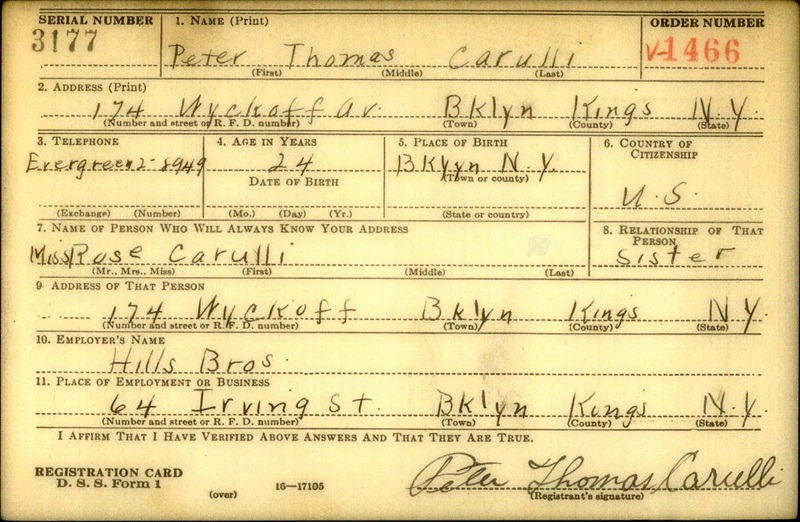 SERIAL NUMBER 1. NAME (Print) ORDER NUMBER
3177 Peter Thomas Carulli V-1466
(First) (Middle) (Last)
2. ADDRESS (Print)
174 Wyckoff Av. Bklyn Kings N.Y.
(Number and street or R. F. D. number) (Town) (County) (State)
3. TELEPHONE 4. AGE IN YEARS 5. PLACE OF BIRTH 6. COUNTRY OF CITIZENSHIP
Evergreen 2-8949 24 Bklyn N.Y.
(Town or county)
DATE OF BIRTH
U.S.
(Exchange) (Number) (Mo.) (Day) (Yr.) (State or country)
7. NAME OF PERSON WHO WILL ALWAYS KNOW YOUR ADDRESS 8. RELATIONSHIP OF THAT PERSON
Miss Rose Carulli Sister
(Mr., Mrs., Miss) (First) (Middle) (Last)
9 ADDRESS OF THAT PERSON
174 Wyckoff Bklyn Kings N Y
(Number and street or R. F. D. number) (Town) (County) (State)
10. EMPLOYER'S NAME
Hills Bros.
11. PLACE OF EMPLOYMENT OR BUSINESS
64 Irving St. Bklyn Kings N.Y.
(Number and street or R. F. D. number) (Town) (County) (State)
I AFFIRM THAT I HAVE VERIFIED ABOVE ANSWERS AND THAT THEY ARE TRUE.
REGISTRATION CARD
D. S. S. Form 1 16—17105 Peter Thomas Carulli
(over) (Registrant's signature)